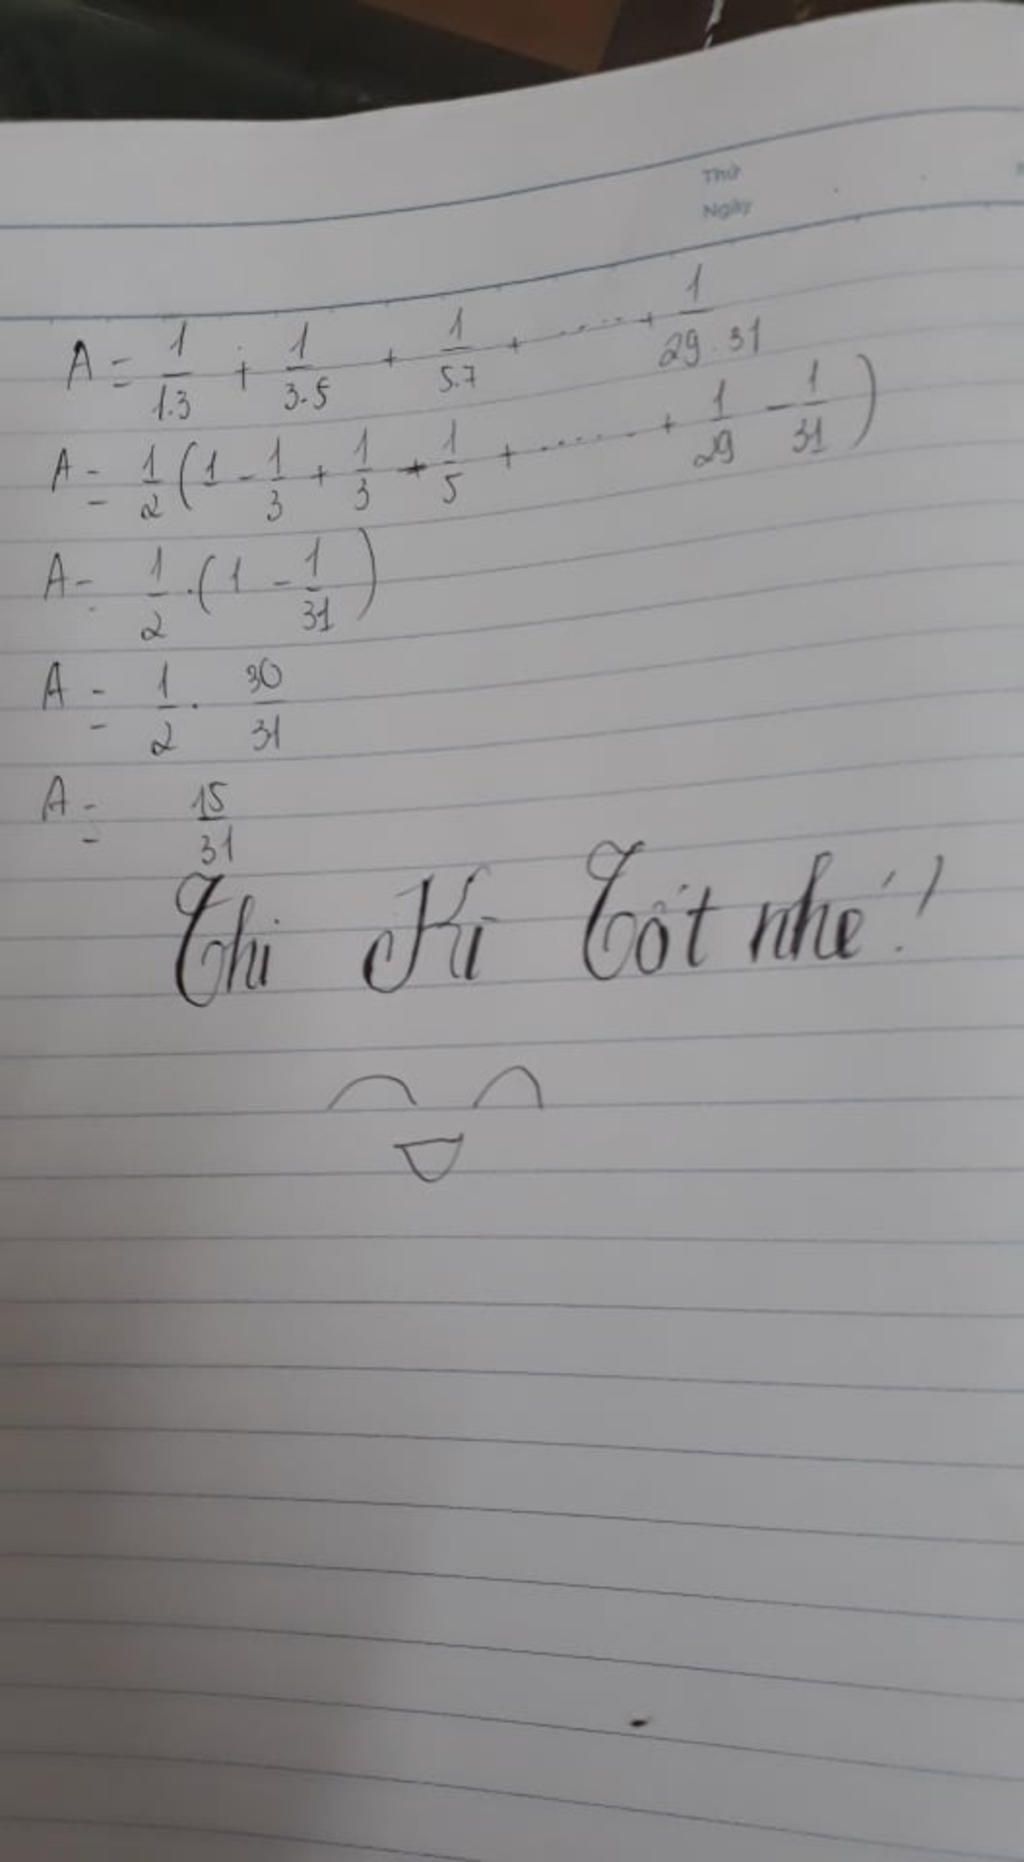 Thứ
Ngày
A = 1/1.3 + 1/3.5 + 1/5.7 + ..... + 1/29.31
A = 1/2 (1 - 1/3 + 1/3 - 1/5 + ..... + 1/29 - 1/31)
A = 1/2 . (1 - 1/31)
A = 1/2 . 30/31
A = 15/31
Thi Kì Tốt nhé!